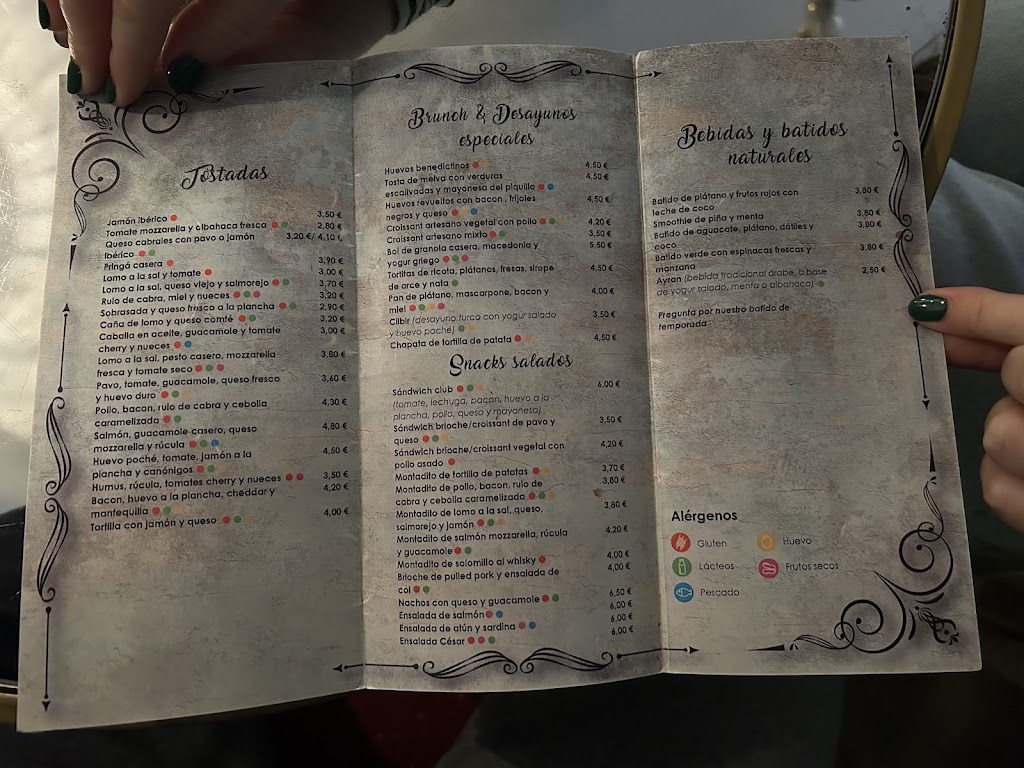 Tostadas
Jamón ibérico 3,50 €
Tomate mozzarella y albahaca fresca 2,80 €
Queso cabrales con pavo o jamón 3,20 €/ 4,10 €
ibérico
Pringá casera 3,90 €
Lomo a la sal y tomate 3,00 €
Lomo a la sal, queso viejo y salmorejo 3,70 €
Rulo de cabra, miel y nueces 3,20 €
Sobrasada y queso fresco a la plancha 2,90 €
Caña de lomo y queso comté 3,20 €
Caballa en aceite, guacamole y tomate 3,00 €
cherry y nueces
Lomo a la sal, pesto casero, mozzarella 3,80 €
fresca y tomate seco
Pavo, tomate, guacamole, queso fresco 3,60 €
y huevo duro
Pollo, bacon, rulo de cabra y cebolla 4,30 €
caramelizada
Salmón, guacamole casero, queso 4,80 €
mozzarella y rúcula
Huevo poché, tomate, jamón a la 4,50 €
plancha y canónigos
Humus, rúcula, tomates cherry y nueces 3,50 €
Bacon, huevo a la plancha, cheddar y 4,20 €
mantequilla
Tortilla con jamón y queso 4,00 €
Brunch & Desayunos
especiales
Huevos benedictinos 4,50 €
Tosta de melva con verduras 4,50 €
escalivadas y mayonesa del piquillo
Huevos revueltos con bacon , frijoles 4,50 €
negros y queso
Croissant artesano vegetal con pollo 4,20 €
Croissant artesano mixto 3,50 €
Bol de granola casera, macedonia y 5,50 €
yogur griego
Tortitas de ricota, plátanos, fresas, sirope 4,50 €
de arce y nata
Pan de plátano, mascarpone, bacon y 4,00 €
miel
Cilbir (desayuno turco con yogur salado 3,50 €
y huevo poché)
Chapata de tortilla de patata 4,50 €
Snacks salados
Sándwich club 6,00 €
(tomate, lechuga, bacon, huevo a la
plancha, pollo, queso y mayonesa)
Sándwich brioche/croissant de pavo y 3,50 €
queso
Sándwich brioche/croissant vegetal con 4,20 €
pollo asado
Montadito de tortilla de patatas 3,70 €
Montadito de pollo, bacon, rulo de 3,80 €
cabra y cebolla caramelizada
Montadito de lomo a la sal, queso, 3,80 €
salmorejo y jamón
Montadito de salmón mozzarella, rúcula 4,20 €
y guacamole
Montadito de solomillo al whisky 4,00 €
Brioche de pulled pork y ensalada de 4,00 €
col
Nachos con queso y guacamole 6,50 €
Ensalada de salmón 6,00 €
Ensalada de atún y sardina 6,00 €
Ensalada César 6,00 €
Bebidas y batidos
naturales
Batido de plátano y frutos rojos con 3,80 €
leche de coco
Smoothie de piña y menta 3,80 €
Batido de aguacate, plátano, dátiles y 3,80 €
coco
Batido verde con espinacas frescas y 3,80 €
manzana
Ayran (bebida tradicional árabe, a base 2,50 €
de yogur salado, menta o albahaca)
Pregunta por nuestro batido de
temporada
Alérgenos
Gluten Huevo
Lácteos Frutos secos
Pescado